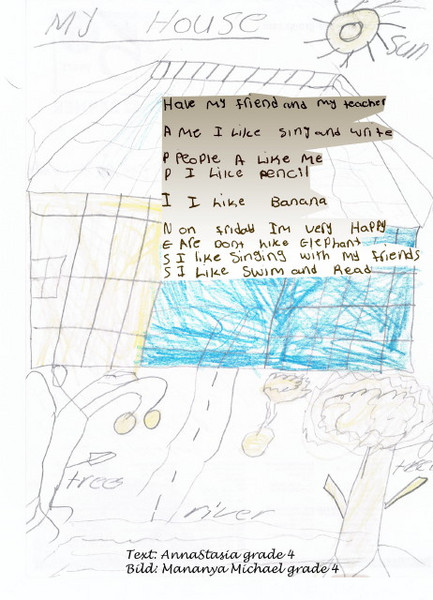 MY HOUSE
Sun
Have my friend and my teacher
A Me I Like sing and write
P People A Like Me
P I Like pencil
I I hike Banana
N on friday Im very Happy
E Are Dont hike Elephant
S I like Singing with my friends
S I Like Swim and Read
trees
river
Text: AnnaStasia grade 4
Bild: Mananya Michael grade 4